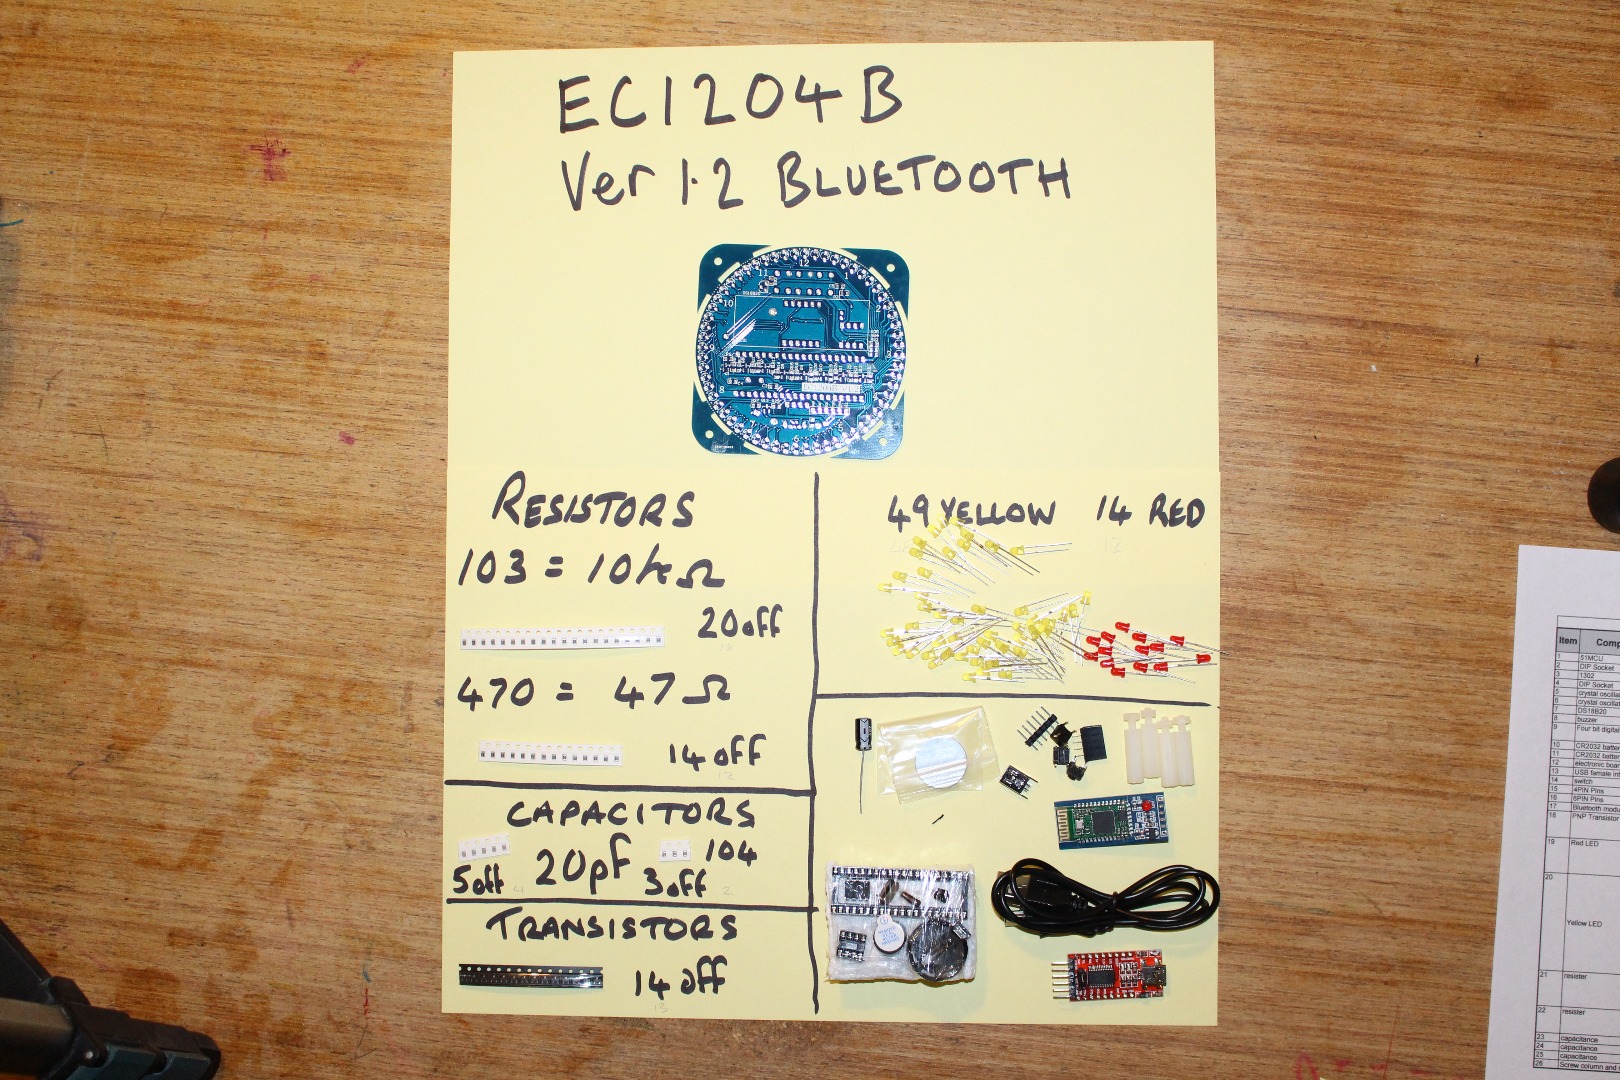 EC1204B
Ver 1.2 BLUETOOTH
12
11
1
10
2
DS18B20
9
8
7
6
5
RESISTORS
103 = 10kΩ
20 off
470 = 47Ω
14 off
CAPACITORS
5 off 20pf 3 off 104
TRANSISTORS
14 off
49 YELLOW 14 RED
Item
1 51MCU
2 DIP Socket
3 1302
4 DIP Socket
5 crystal
6 crystal
7 DS18B20
8 buzzer
9 Four bit
10 CR2032
11 CR2032
12
13 USB female
14 switch
15 4PIN Pins
16 6PIN Pins
17 Bluetooth
18 PNP Transistor
19 Red LED
20
Yellow LED
21 resister
22 resister
23 capacitance
24 capacitance
25 capacitance
26 Screw column and